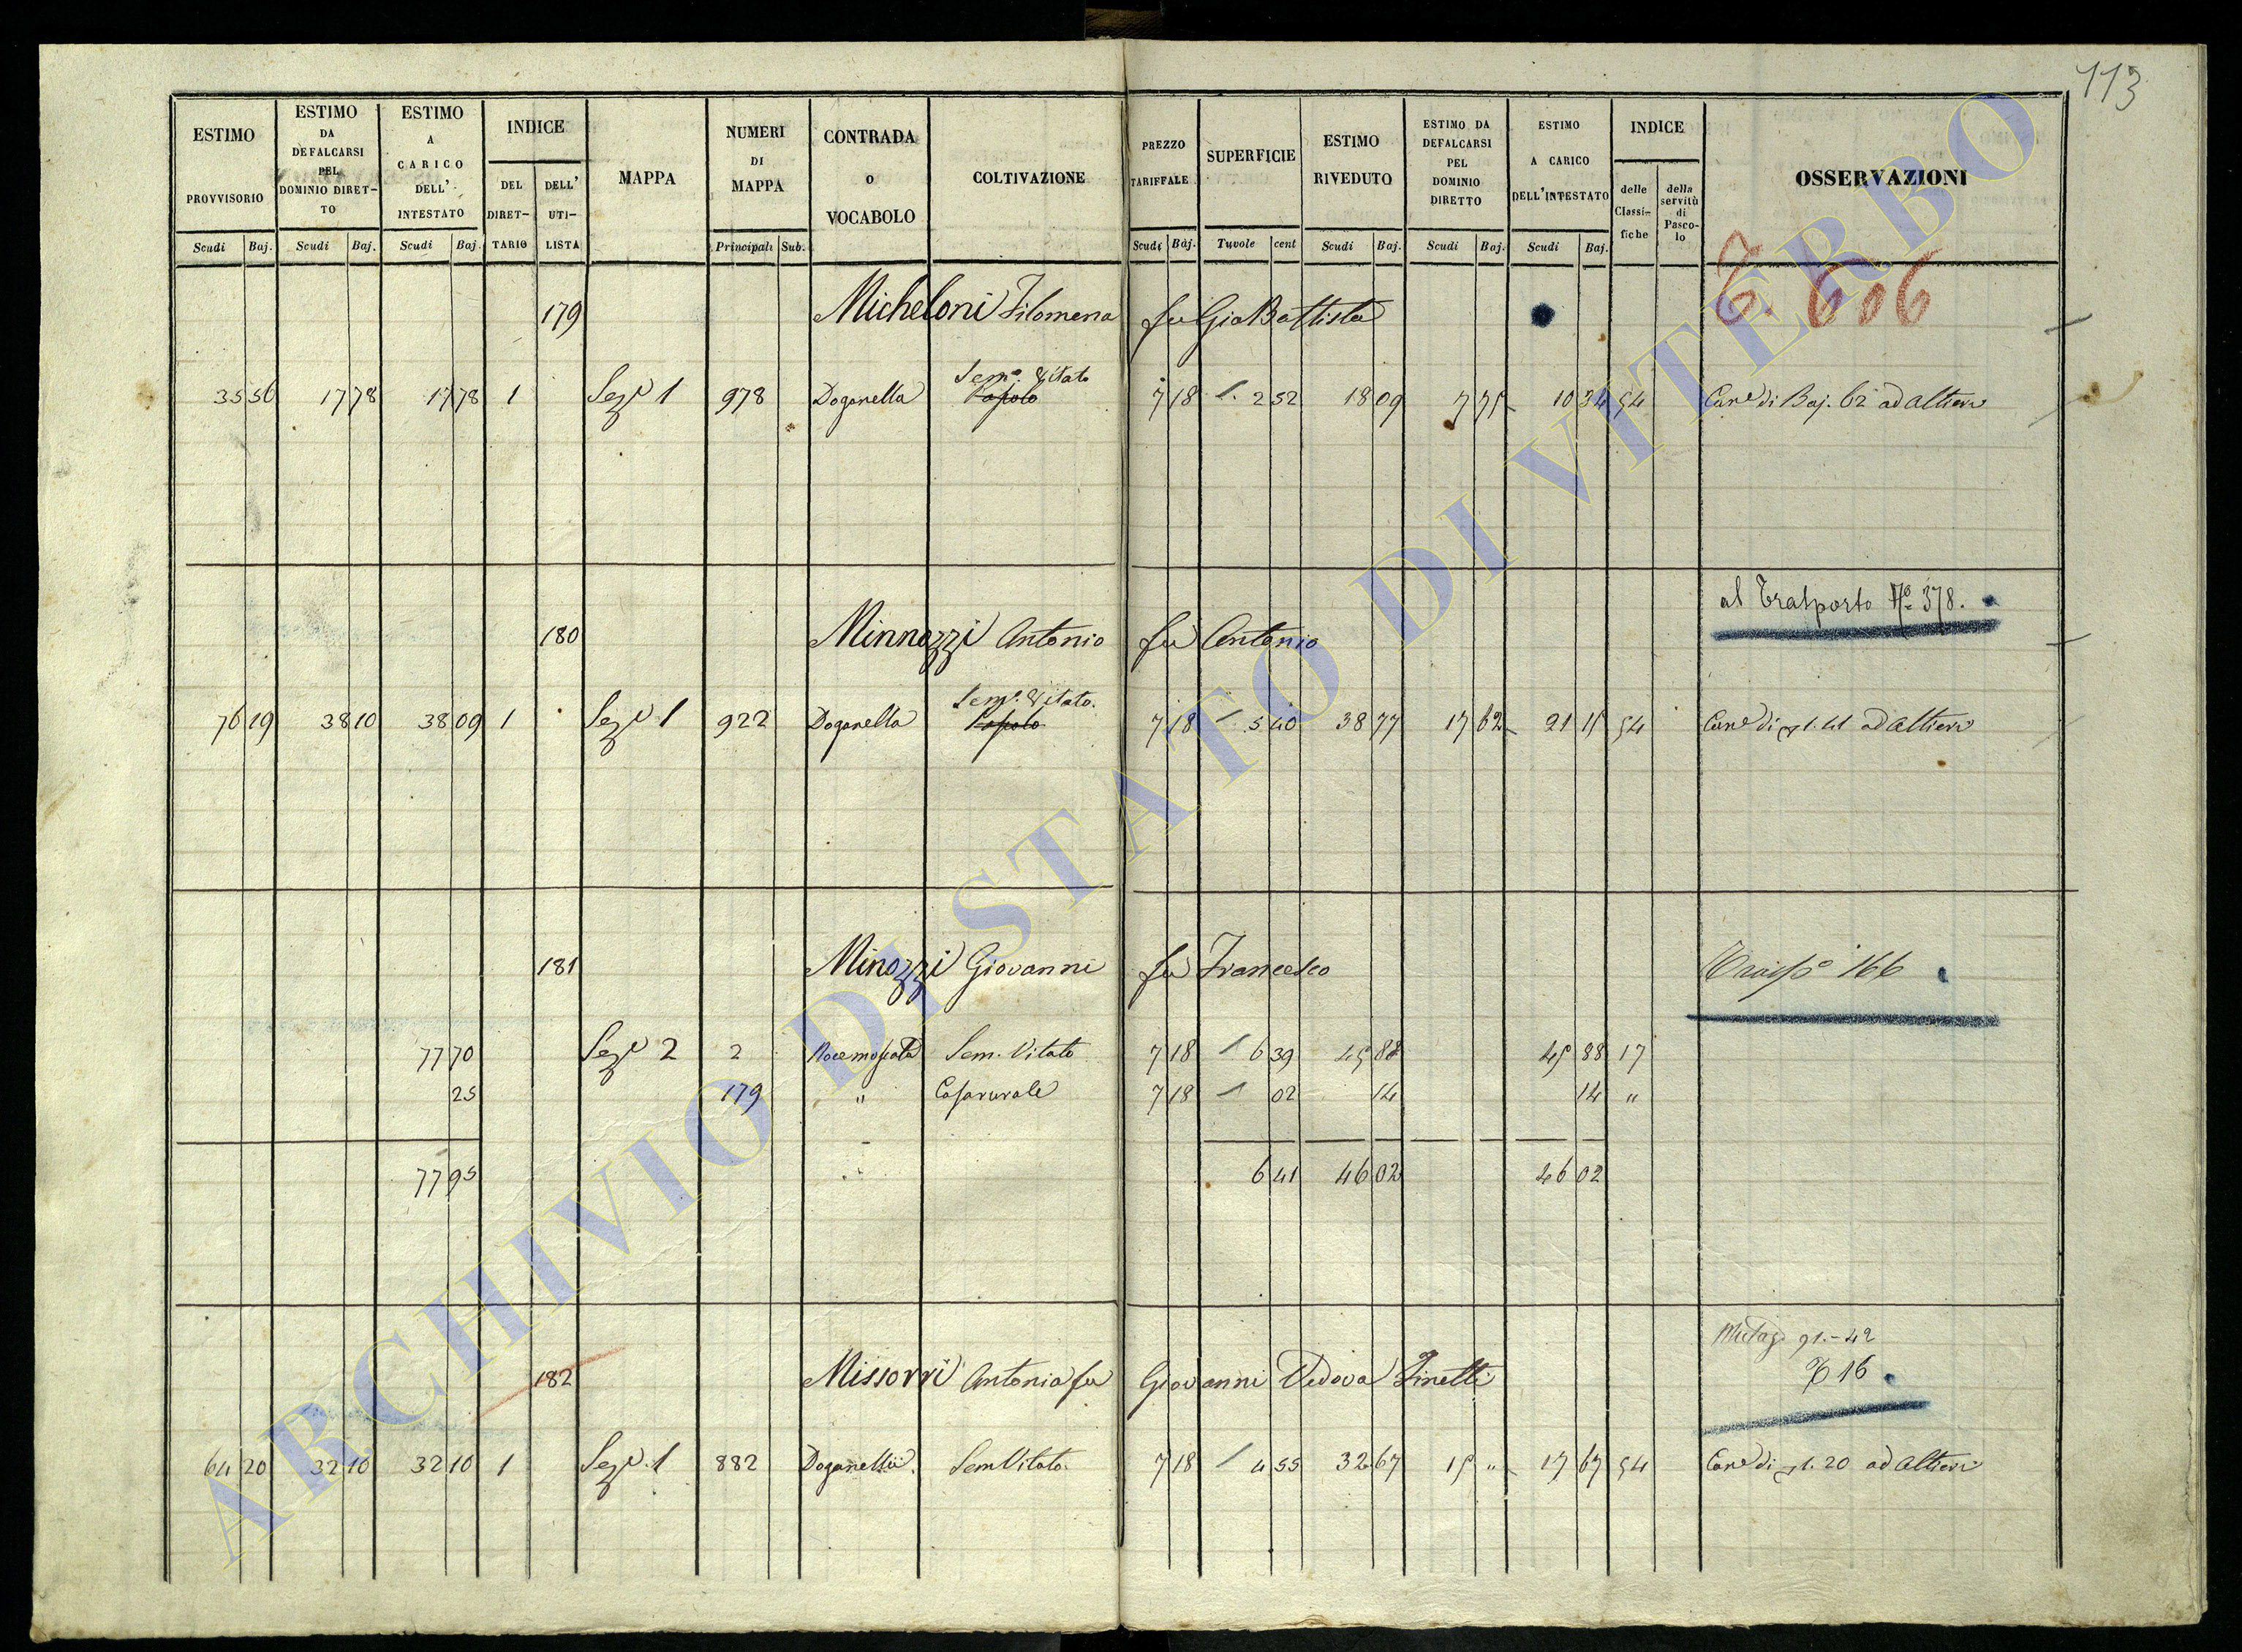 113
ESTIMO PROVVISORIO
ESTIMO DA DEFALCARSI PEL DOMINIO DIRET-TO
ESTIMO A CARICO DELL' INTESTATO
INDICE
DEL DIRET-TARIO
DELL' UTI-LISTA
MAPPA
NUMERI DI MAPPA
CONTRADA O VOCABOLO
COLTIVAZIONE
PREZZO TARIFFALE
SUPERFICIE
ESTIMO RIVEDUTO
ESTIMO DA DEFALCARSI PEL DOMINIO DIRETTO
ESTIMO A CARICO DELL'INTESTATO
INDICE
delle Classi-fiche
della servitù di Pasco-lo
OSSERVAZIONI
Scudi Baj. Scudi Baj. Scudi Baj. Principali Sub. Scudi Baj. Tavole cent Scudi Baj. Scudi Baj. Scudi Baj.
606
179 Micheloni Filomena fu Gio Battista
Sem.o Vitato
35 56 17 78 17 78 1 Sez.e 1 978 Doganella 7 18 2 52 18 09 7 75 10 34 54 Can.e di Baj. 62 ad Altieri
al Trasporto N.o 378.
180 Minnozzi Antonio fu Antonio
Sem.o Vitato.
76 19 38 10 38 09 1 Sez.e 1 922 Doganella 7 18 5 40 38 77 17 62 21 15 54 Can.e di 1.41 ad Altieri
181 Minozzi Giovanni fu Francesco Trasp.o 166
77 70 Sez.e 2 2 Nocemoscata Sem. Vitato 7 18 6 39 45 88 45 88 17
25 179 " Casa rurale 7 18 02 14 14 "
77 95 6 41 46 02 46 02
91.-42
182 Missorri Antonia fu Giovanni Vedova Zinetti 16
64 20 32 10 32 10 1 Sez.e 1 882 Doganella Sem Vitato 7 18 4 55 32 67 15 " 17 67 54 Can.e di 1.20 ad Altieri
ARCHIVIO DI STATO DI VITERBO